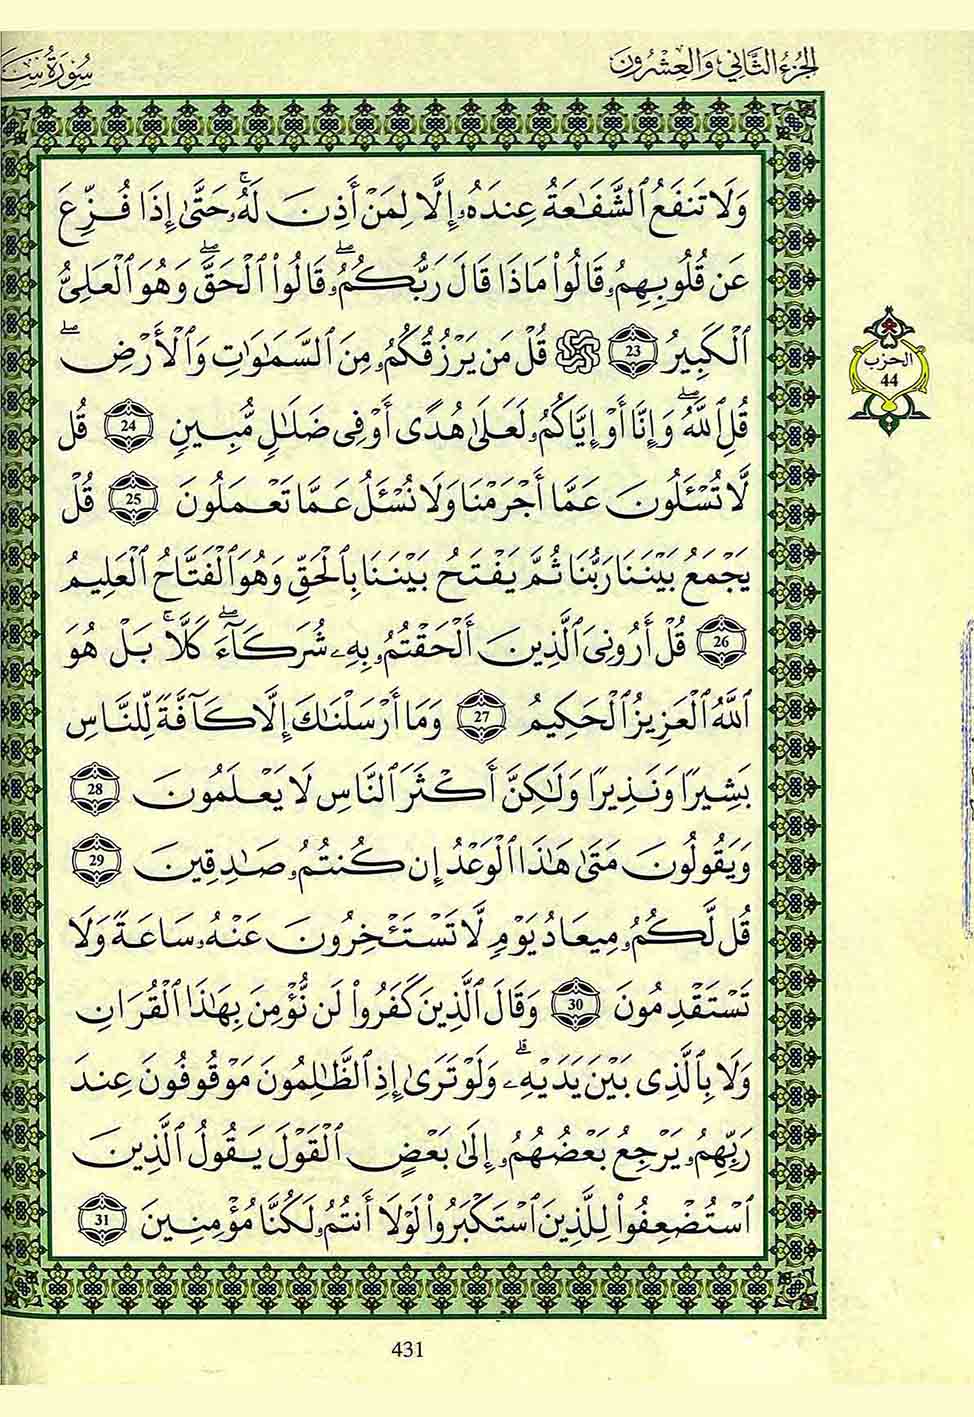 الجزء الثاني والعشرون
سورة سبـ
وَلَا تَنفَعُ ٱلشَّفَٰعَةُ عِندَهُۥٓ إِلَّا لِمَنْ أَذِنَ لَهُۥۚ حَتَّىٰٓ إِذَا فُزِّعَ
عَن قُلُوبِهِمُۥ قَالُوا۟ مَاذَا قَالَ رَبُّكُمُۥۖ قَالُوا۟ ٱلْحَقَّۖ وَهُوَ ٱلْعَلِىُّ
ٱلْكَبِيرُ 23 ۞ قُلْ مَن يَرْزُقُكُمُۥ مِنَ ٱلسَّمَٰوَٰتِ وَٱلْأَرْضِۖ
قُلِ ٱللَّهُۖ وَإِنَّا أَوْ إِيَّاكُمُۥ لَعَلَىٰ هُدًى أَوْ فِى ضَلَٰلٍ مُّبِينٍ 24 قُل
لَّا تُسْـَٔلُونَ عَمَّا أَجْرَمْنَا وَلَا نُسْـَٔلُ عَمَّا تَعْمَلُونَ 25 قُلْ
يَجْمَعُ بَيْنَنَا رَبُّنَا ثُمَّ يَفْتَحُ بَيْنَنَا بِٱلْحَقِّ وَهُوَ ٱلْفَتَّاحُ ٱلْعَلِيمُ
26 قُلْ أَرُونِىَ ٱلَّذِينَ أَلْحَقْتُمُۥ بِهِۦ شُرَكَآءَۖ كَلَّاۚ بَلْ هُوَ
ٱللَّهُ ٱلْعَزِيزُ ٱلْحَكِيمُ 27 وَمَا أَرْسَلْنَٰكَ إِلَّا كَآفَّةً لِّلنَّاسِ
بَشِيرًا وَنَذِيرًا وَلَٰكِنَّ أَكْثَرَ ٱلنَّاسِ لَا يَعْلَمُونَ 28
وَيَقُولُونَ مَتَىٰ هَٰذَا ٱلْوَعْدُ إِن كُنتُمُۥ صَٰدِقِينَ 29
قُل لَّكُمُۥ مِيعَادُ يَوْمٍ لَّا تَسْتَـْٔخِرُونَ عَنْهُۥ سَاعَةً وَلَا
تَسْتَقْدِمُونَ 30 وَقَالَ ٱلَّذِينَ كَفَرُوا۟ لَن نُّؤْمِنَ بِهَٰذَا ٱلْقُرَانِ
وَلَا بِٱلَّذِى بَيْنَ يَدَيْهِۦۗ وَلَوْ تَرَىٰ إِذِ ٱلظَّٰلِمُونَ مَوْقُوفُونَ عِندَ
رَبِّهِمُۥ يَرْجِعُ بَعْضُهُمُۥ إِلَىٰ بَعْضٍ ٱلْقَوْلَ يَقُولُ ٱلَّذِينَ
ٱسْتُضْعِفُوا۟ لِلَّذِينَ ٱسْتَكْبَرُوا۟ لَوْلَا أَنتُمُۥ لَكُنَّا مُؤْمِنِينَ 31
الحزب
44
431